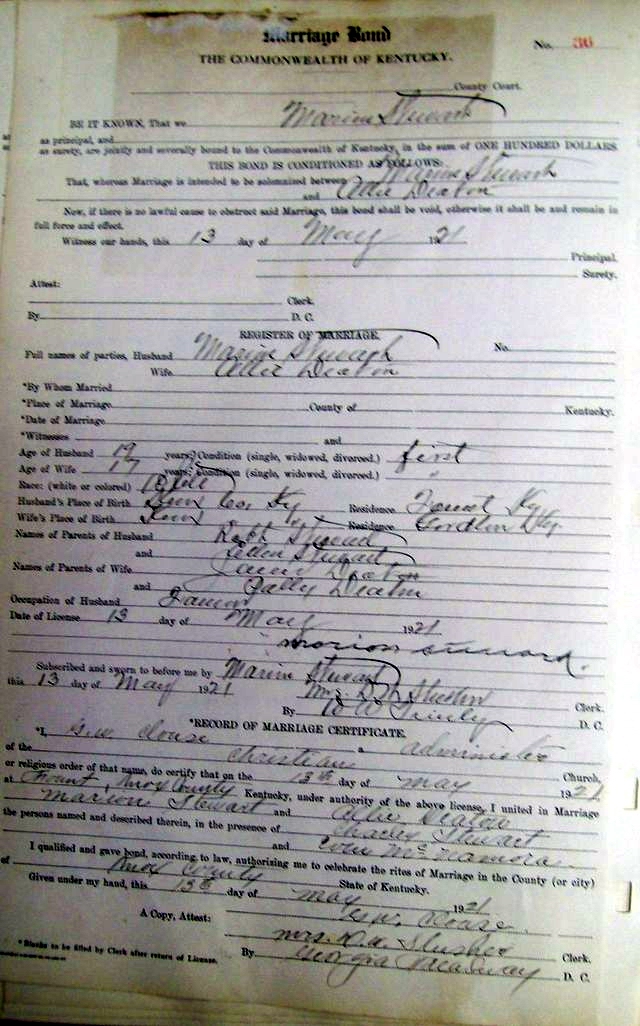 Marriage Bond
No. 36
THE COMMONWEALTH OF KENTUCKY.
County Court.
BE IT KNOWN, That we Marion Stewart
as principal, and
as surety, are jointly and severally bound to the Commonwealth of Kentucky, in the sum of ONE HUNDRED DOLLARS.
THIS BOND IS CONDITIONED AS FOLLOWS:
That, whereas Marriage is intended to be solemnized between Marion Stewart
and Allie Deaton
Now, if there is no lawful cause to obstruct said Marriage, this bond shall be void, otherwise it shall be and remain in
full force and effect.
Witness our hands, this 13 day of May 1921
Principal.
Surety.
Attest:
Clerk.
By D. C.
REGISTER OF MARRIAGE.
Full names of parties, Husband Marion Stewart No.
Wife Allie Deaton
*By Whom Married
*Place of Marriage County of Kentucky.
*Date of Marriage
*Witnesses and
Age of Husband 19 years; Condition (single, widowed, divorced.) first
Age of Wife 17 years; Condition (single, widowed, divorced.) "
Race: (white or colored)
Husband's Place of Birth Co. Ky Residence Fount Ky
Wife's Place of Birth Residence Ky.
Names of Parents of Husband Robt Steward
and Stewart
Names of Parents of Wife Deaton
and Sally Deaton
Occupation of Husband Farmer
Date of License 13 day of May 1921
marion steward.
Subscribed and sworn to before me by Marion Stewart
this 13 day of May 1921 Mrs. D M Slusher Clerk.
By D. C.
*RECORD OF MARRIAGE CERTIFICATE.
*I, G.W. Clouse a administer
of the Christian Church,
or religious order of that name, do certify that on the 13th day of May 1921
at Fount, Knox County Kentucky, under authority of the above license, I united in Marriage
Marion Stewart and Allie Deaton
the persons named and described therein, in the presence of Charley Stewart
and McNamora
I qualified and gave bond, according to law, authorizing me to celebrate the rites of Marriage in the County (or city)
of Knox County State of Kentucky.
Given under my hand, this 13th day of May 1921
G.W. Clouse.
A Copy, Attest: Mrs. D.M. Slusher Clerk.
*Blanks to be filled by Clerk after return of License. By Georgia D. C.